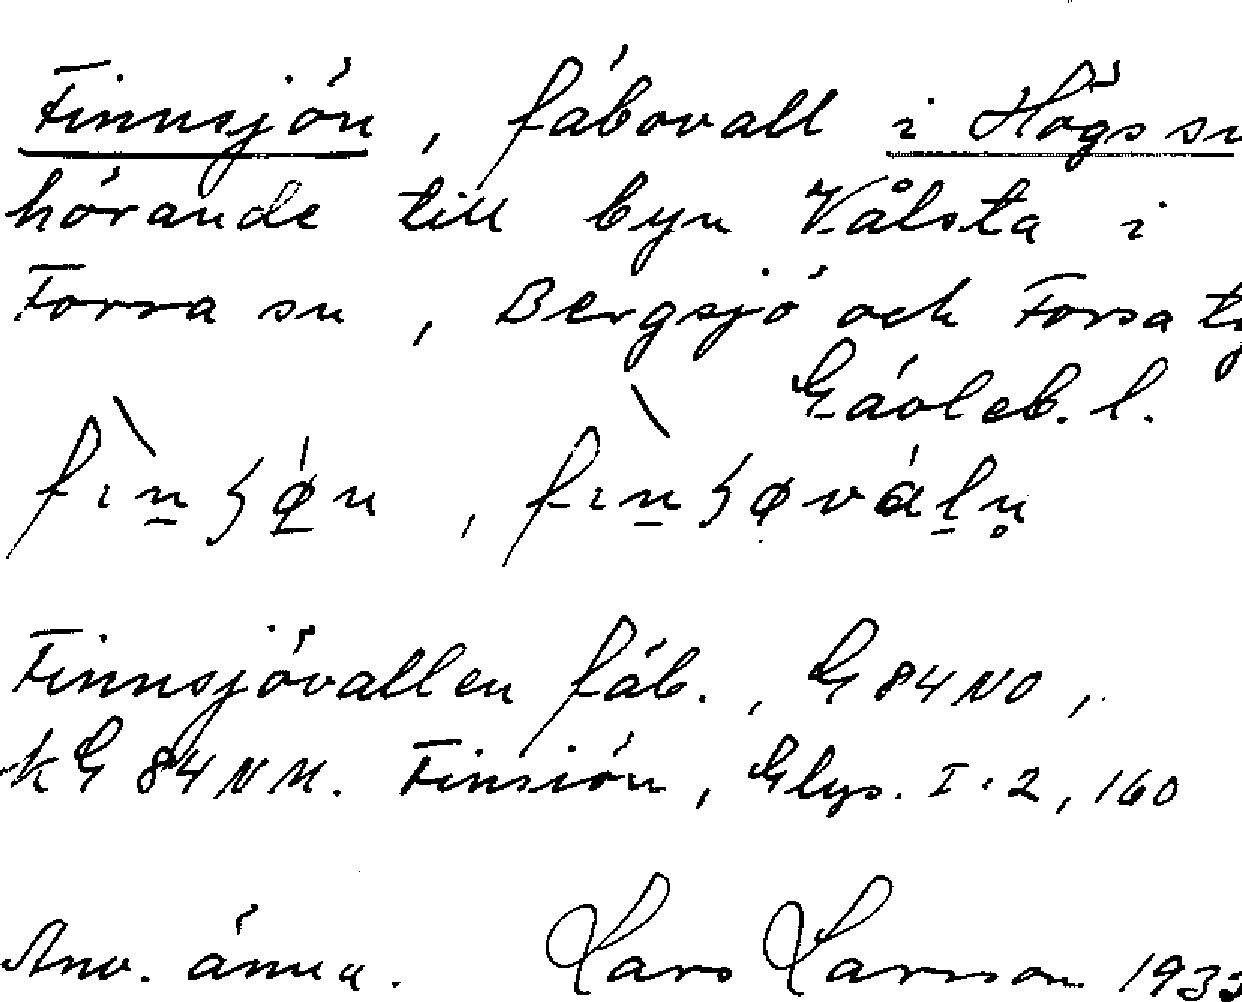 Finnsjön, fäbovall i Högs sn
hörande till byn Vålsta i
Forsa sn, Bergsjö och Forsa
Gävleb. l.
Finnsjövallen fäb., G 84 NO,
kG 84 NN. Finsiön, Glys. I:2, 160
Anv. ännu. Lars Larsson 1933